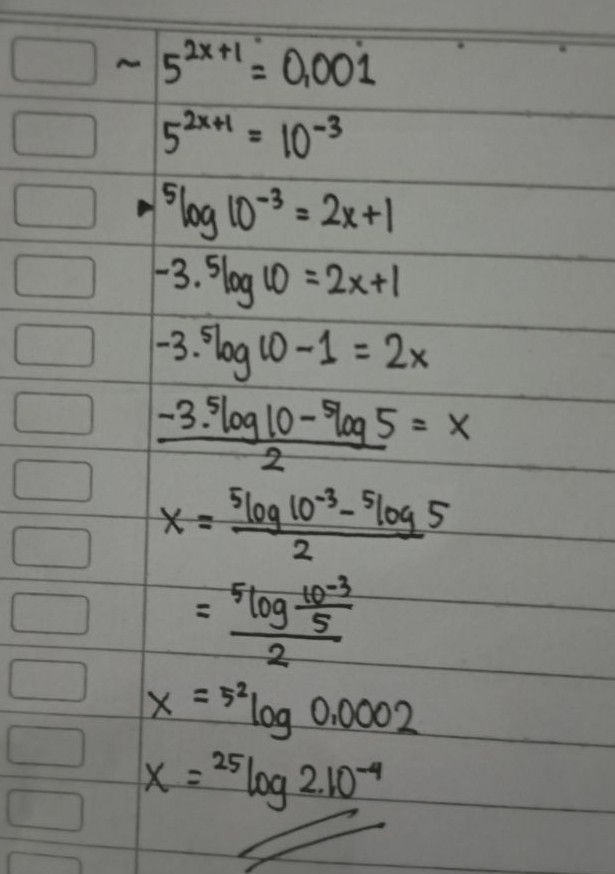 ~ 5^{2x+1} = 0,001
5^{2x+1} = 10^{-3}
▸ ⁵log 10^{-3} = 2x+1
-3. ⁵log 10 = 2x+1
-3. ⁵log 10 - 1 = 2x
\frac{-3. ⁵log 10 - ⁵log 5}{2} = x
x = \frac{⁵log 10^{-3} - ⁵log 5}{2}
= \frac{⁵log \frac{10^{-3}}{5}}{2}
x = ^{5^2}log 0.0002
x = ²⁵log 2.10^{-4}